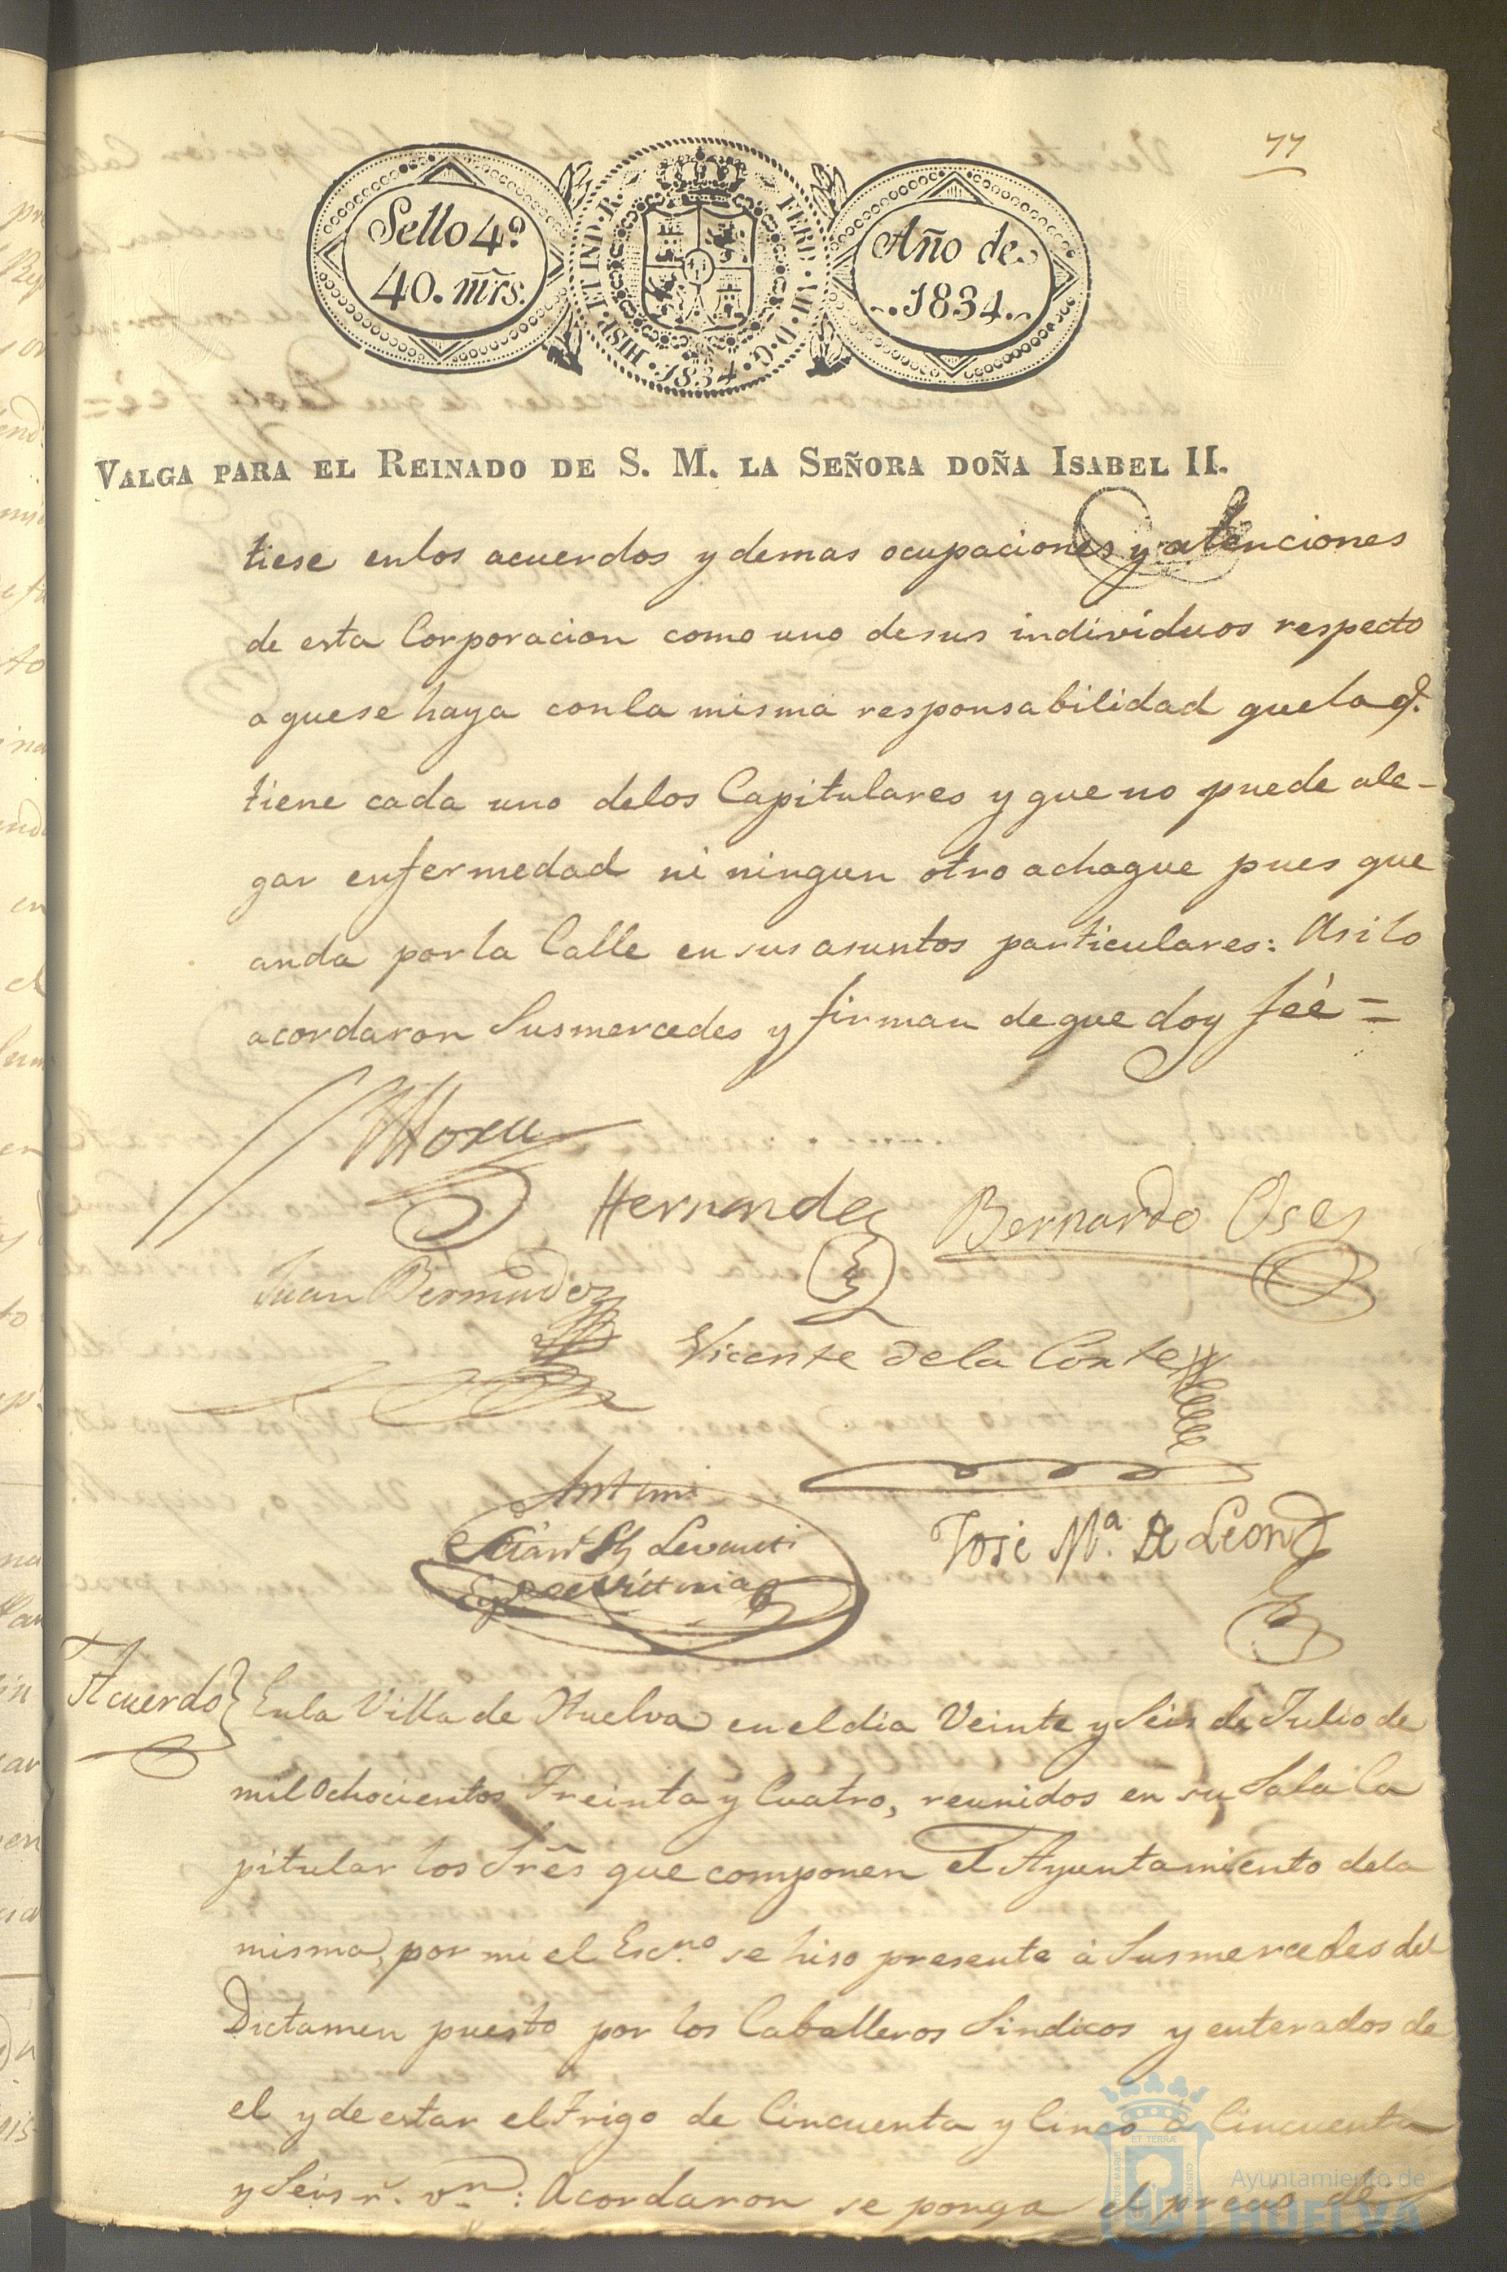 77
Sello 4º
40. mrs.
HISP. ET IND. R. FERD. VII. D. G. 1834.
Año de
1834.
VALGA PARA EL REINADO DE S. M. LA SEÑORA DOÑA ISABEL II.
tiese enlos acuerdos y demas ocupaciones y atenciones
de esta Corporacion como uno desus individuos respecto
a quese haya conla misma responsabilidad quela q.
tiene cada uno delos Capitulares y que no puede ale-
gar enfermedad ni ningun otro achaque pues que
anda porla Calle en sus asuntos particulares: Asi lo
acordaron Susmercedes y firman deque doy feé =
Mora
Hernandez
Bernardo Oses
Juan Bermudez
Vicente dela Corte
Antemi
José Mª. De Leon
Acuerdo
Enla Villa de Huelva en el dia Veinte y Seis de Julio de
mil Ochocientos Treinta y Cuatro, reunidos en su Sala Ca
pitular los Srẽs que componen el Ayuntamiento dela
misma, por mi el Esc.no se hiso presente á Susmercedes del
Dictamen puesto por los Caballeros Sindicos y enterados de
el y de estar el trigo de Cincuenta y Cinco á Cincuenta
y Seis r.s v.n: Acordaron se ponga el precio de
Ayuntamiento de
HUELVA